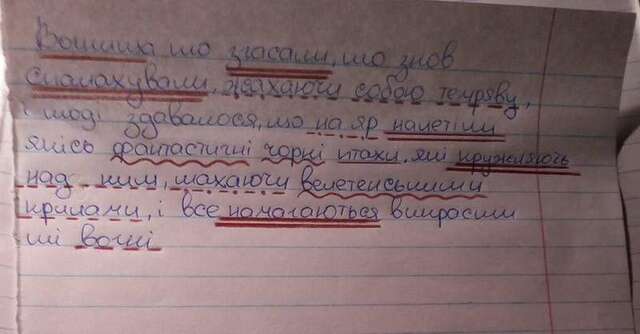 Вогники то згасали, то знов
спалахували, лякаючи собою темряву,
і тоді здавалося, що на яр налетіли
якісь фантастичні чорні птахи, які кружляють
над ним, махаючи велетенськими
крилами, і все намагаються викрасти
ті вогні